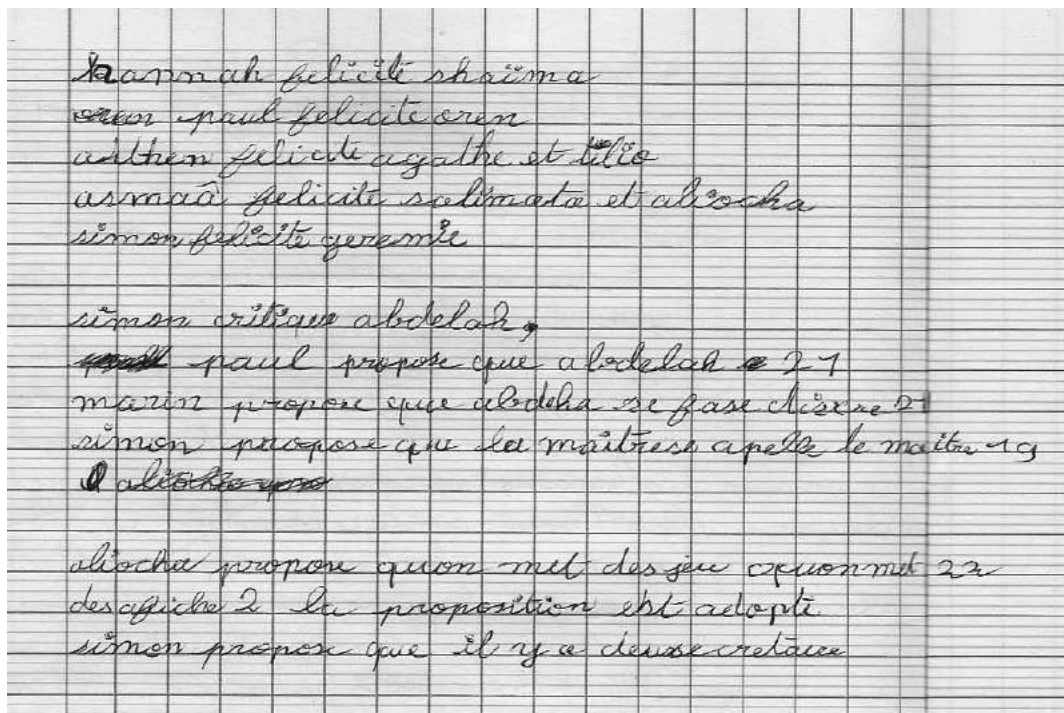 hannah felicite shaïma
paul felicite oren
felicite agathe et tilio
asmaâ felicite salimata et aliocha
simon felicite geremie
simon critique abdelah,
paul propose que abdelah 21
marin propose que abdelha se fase 21
simon propose que la maitrese apelle le maitre 19
aliocha propose quon met des jeu quon met 22
des afiche 2 la proposition est adopté
simon propose que il y a deux